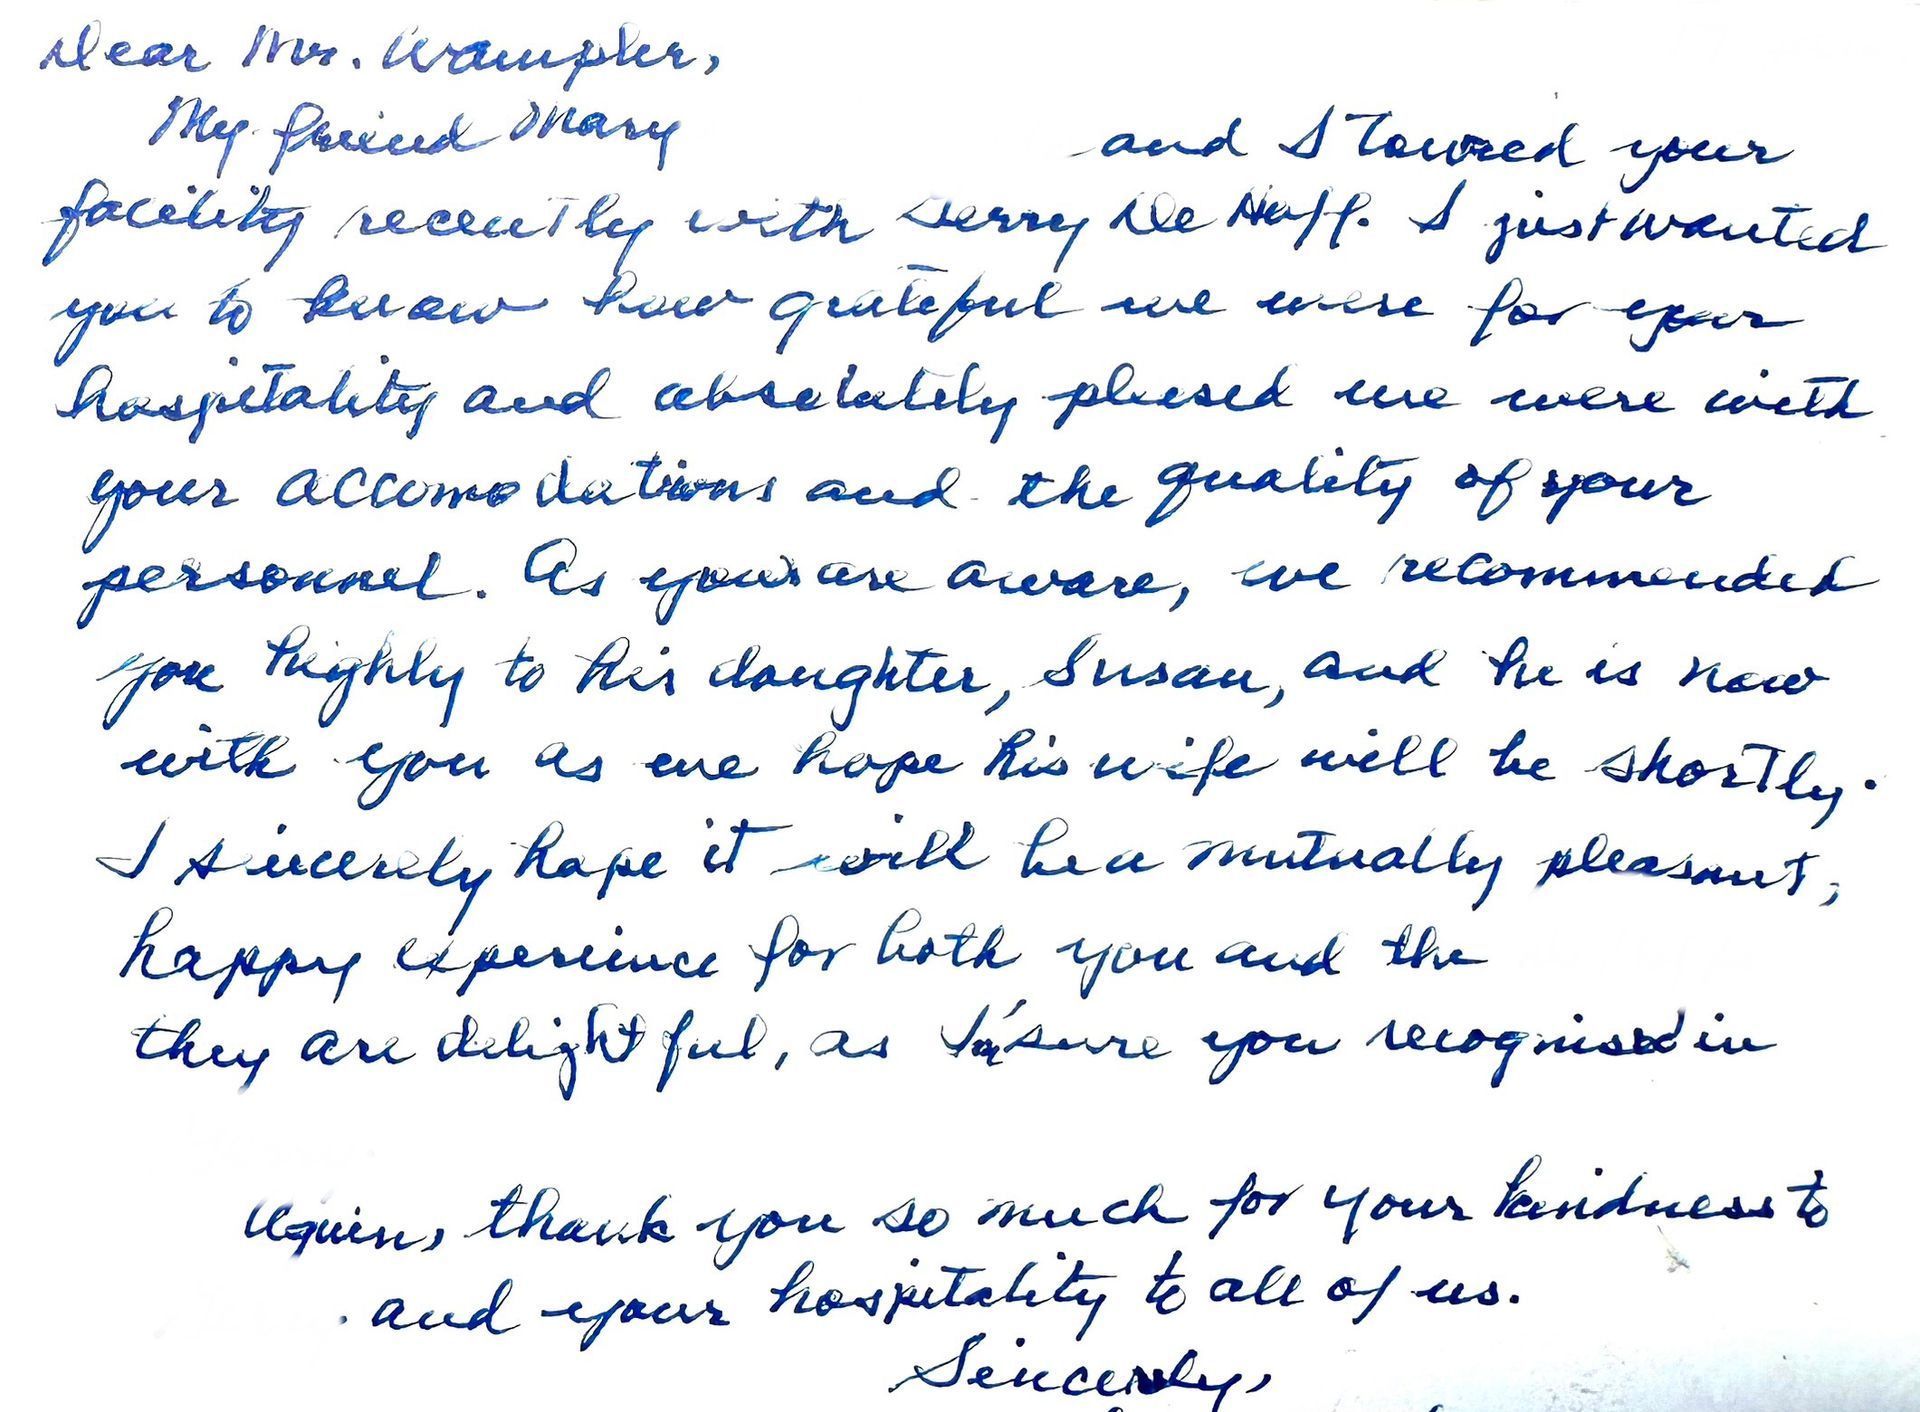 Dear Mr. Wampler,
My friend Mary and I toured your
facility recently with Jerry De Hoff. I just wanted
you to know how grateful we were for your
hospitality and absolutely pleased we were with
your accomodations and the quality of your
personnel. As you are aware, we recommended
you highly to his daughter, Susan, and he is now
with you as we hope his wife will be shortly.
I sincerely hope it will be a mutually pleasant,
happy experience for both you and the
they are delightful, as I'm sure you recognized in
Again, thank you so much for your kindness to
and your hospitality to all of us.
Sincerely,